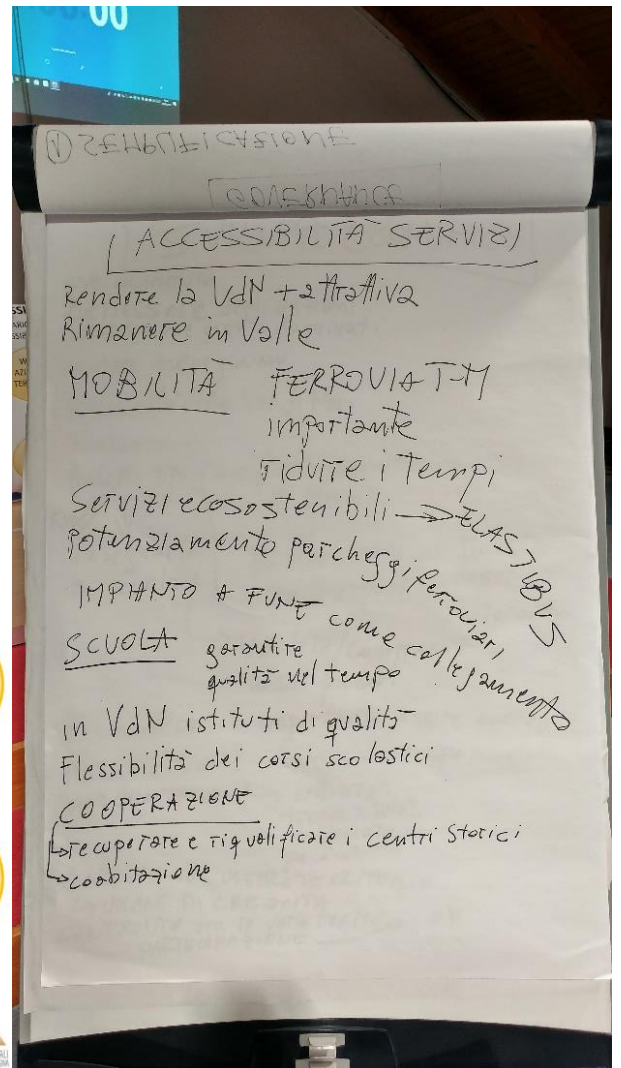 00
① SEMPLIFICAZIONE
GOVERNANCE
ACCESSIBILITÀ SERVIZI
Rendere la VdN + attrattiva
Rimanere in Valle
MOBILITÀ FERROVIA T-M
importante
ridurre i tempi
Servizi ecosostenibili → ELASTIBUS
Potenziamento parcheggi ferroviari
IMPIANTO A FUNE come collegamento
SCUOLA garantire
qualità nel tempo
in VdN istituti di qualità
Flessibilità dei corsi scolastici
COOPERAZIONE
↳ recuperare e riqualificare i centri storici
↳ coabitazione